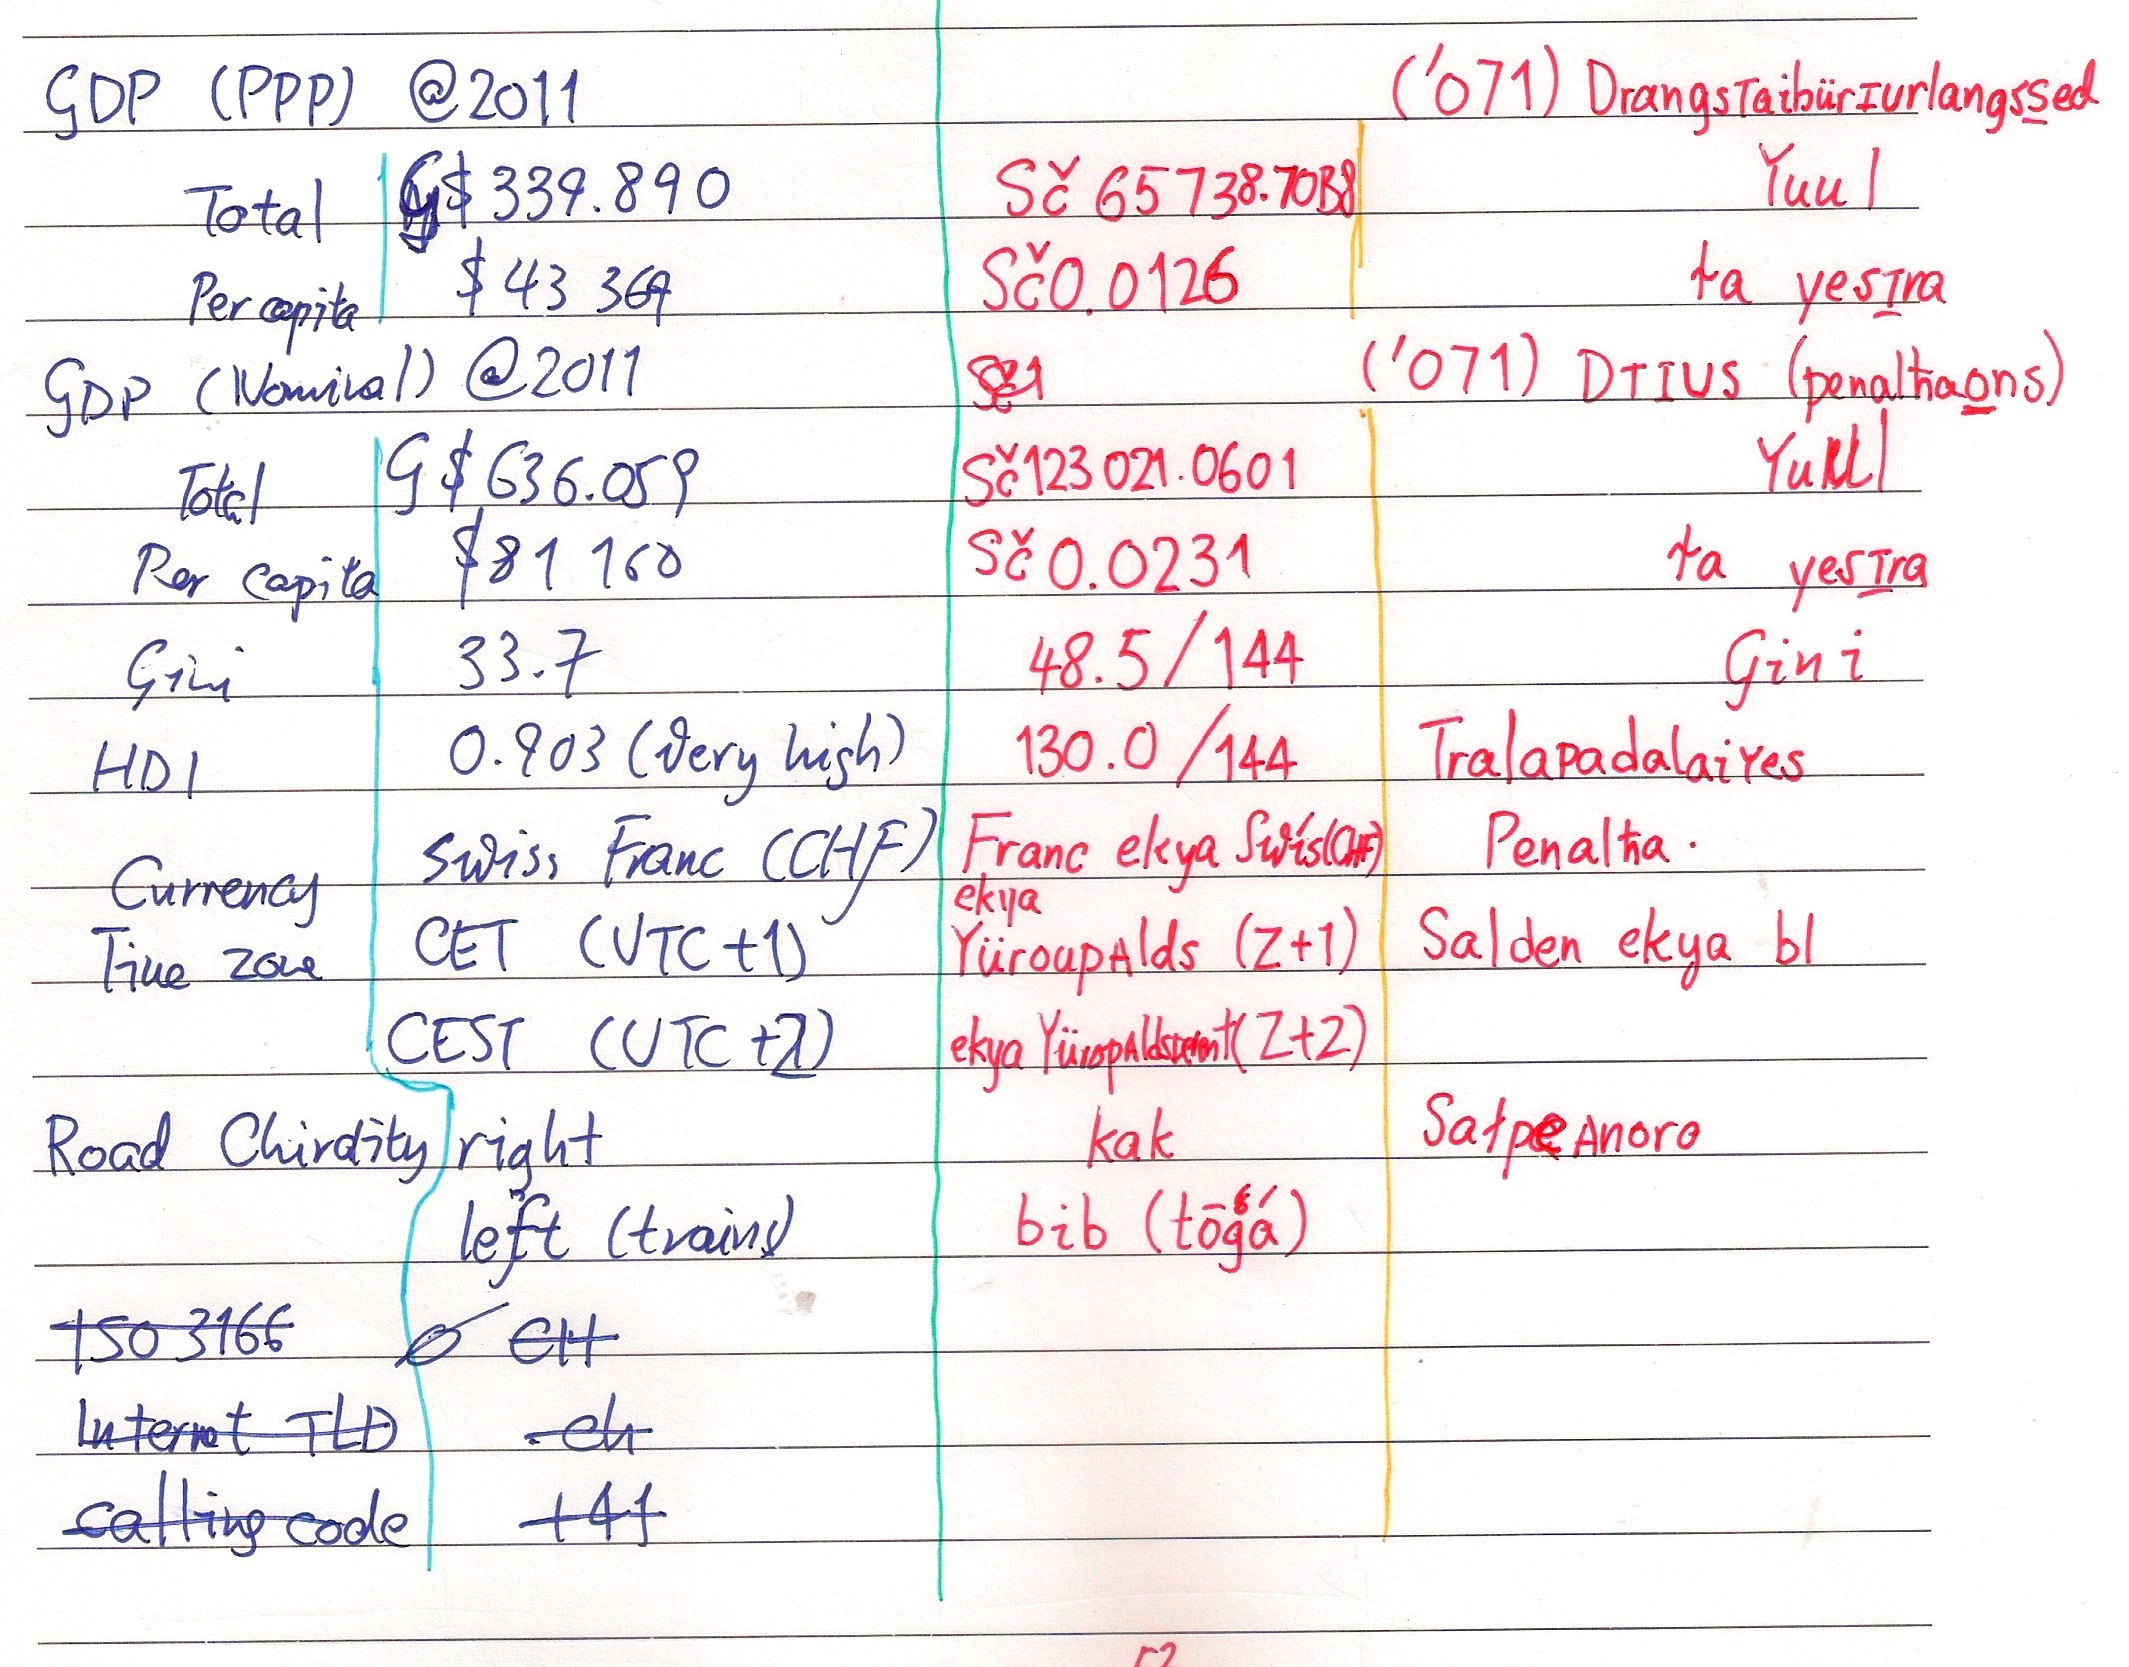 GDP (PPP) @2011 ('071) DrangsTaibürIurlangssed
Total G$ 339.890 Sč 65738.70B8 Yuul
Per capita $43 369 Sč0.0126 ta yesIra
GDP (Nominal) @2011 ('071) DTIUS (penalħaons)
Total G$636.059 Sč123021.0601 Yuul
Per capita $81 160 Sč0.0231 ta yesIra
Gini 33.7 48.5/144 Gini
HDI 0.903 (Very high) 130.0/144 TralapadalaiYes
Currency Swiss Franc (CHF) Franc ekya Swís(CHF) Penalħa.
Time zone CET (UTC+1) ekya YüroupAlds (Z+1) Salden ekya bl
CEST (UTC+2) ekya (Z+2)
Road Chirdity right kak SatpeAnoro
left (trains) bib (tōgá)
ISO 3166 CH
Internet TLD .ch
calling code +41